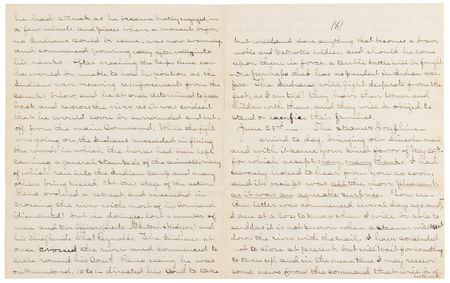 he had struck as he became hotly engaged in
a few minutes, and places where a moment before
no Indians could be seen, was now swarming
and commenced pouring volley after volley into
his ranks. After reaching the top Reno saw
he would be unable to hold his position as the
Indians were receiving reinforcements from the
camps below, and he at once determined to fall
back and recross the river as it was evident
that he would soon be surrounded and cut-
off from the main Command. While the fight
was going on the Indians succeeded in firing
the wood in which the horses had been left
causing a general stampede of the animals, many
of which ran into the Indian camp and many
others being killed. At this stage of the action
Reno ordered a retreat and succeeded in
crossing the river with most of his Command
(dismounted) but in doing so lost a number of
men and two (McIntosh & Hodgson) and
his Surgeon. The Indians at
once crossed the river and commenced to
circle round his Com'd. Reno seeing he was
outnumbered, 10 to 1 directed his Com'd to take
(8)
but will and dare anything that becomes a brave
noble and patriotic soldier, and should he come
upon them in force, a terrible battle will be fought
one perhaps that has no precedent in Indian war-
fare. The Indians will fight desperate from the
fact, as I am told they have their women and
children with them, and they will be obliged to
stand or sacrifice their families.
June 23rd — The steamer Josephine
arrived to-day, bringing our Indian mail
and with it came your kind favor of May 20th
for which accept many, many thanks. I had
scarcely hoped to hear from you so soon,
and its receipt was all the more pleasant
as it was an agreeable surprise.
this letter was commenced several days ago and
I am at a loss to know when I will be able to
send it as it is not known when a steamer will
down the river with the mail. I have concluded
not to close at present but will wait for something
to turn up, and in the meantime I may receive
some news from the command that will be of
interest